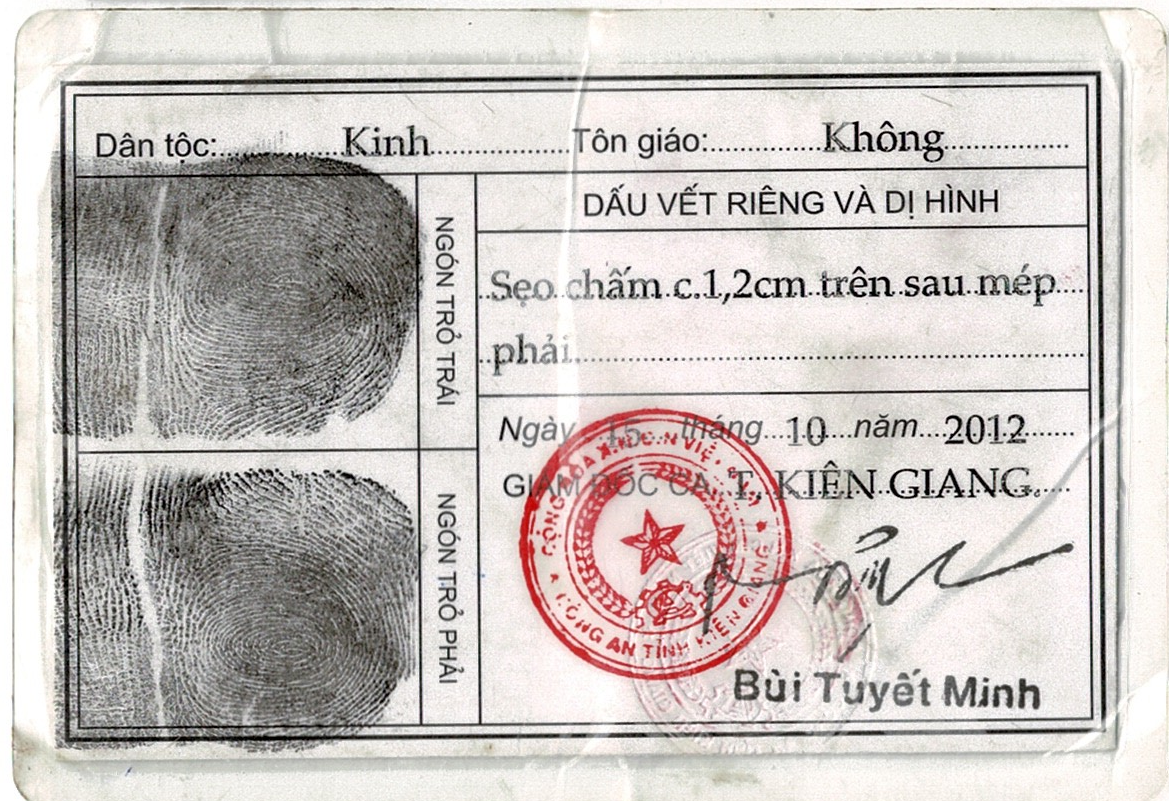 Dân tộc: Kinh Tôn giáo: Không
NGÓN TRỎ TRÁI
NGÓN TRỎ PHẢI
DẤU VẾT RIÊNG VÀ DỊ HÌNH
Sẹo chấm c.1,2cm trên sau mép
phải.
Ngày 15 tháng 10 năm 2012
GIÁM ĐỐC CA T. KIÊN GIANG
CÔNG AN TỈNH KIÊN GIANG
Bùi Tuyết Minh